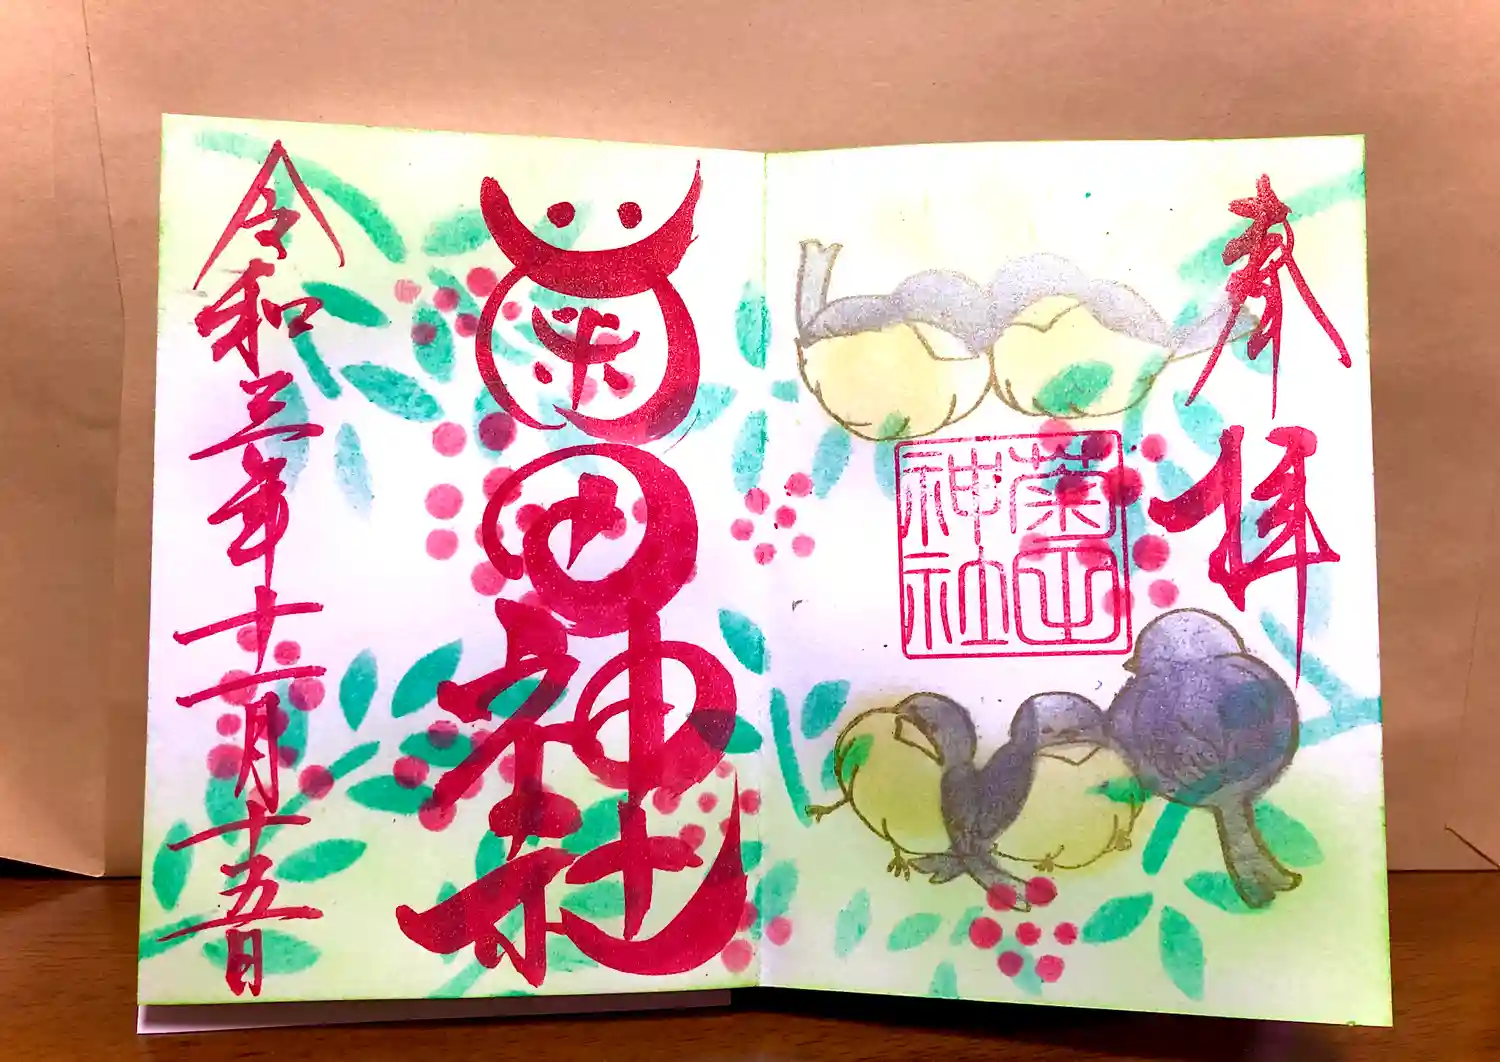 奉拝
菊田神社
菊田神社
令和三年十一月十五日